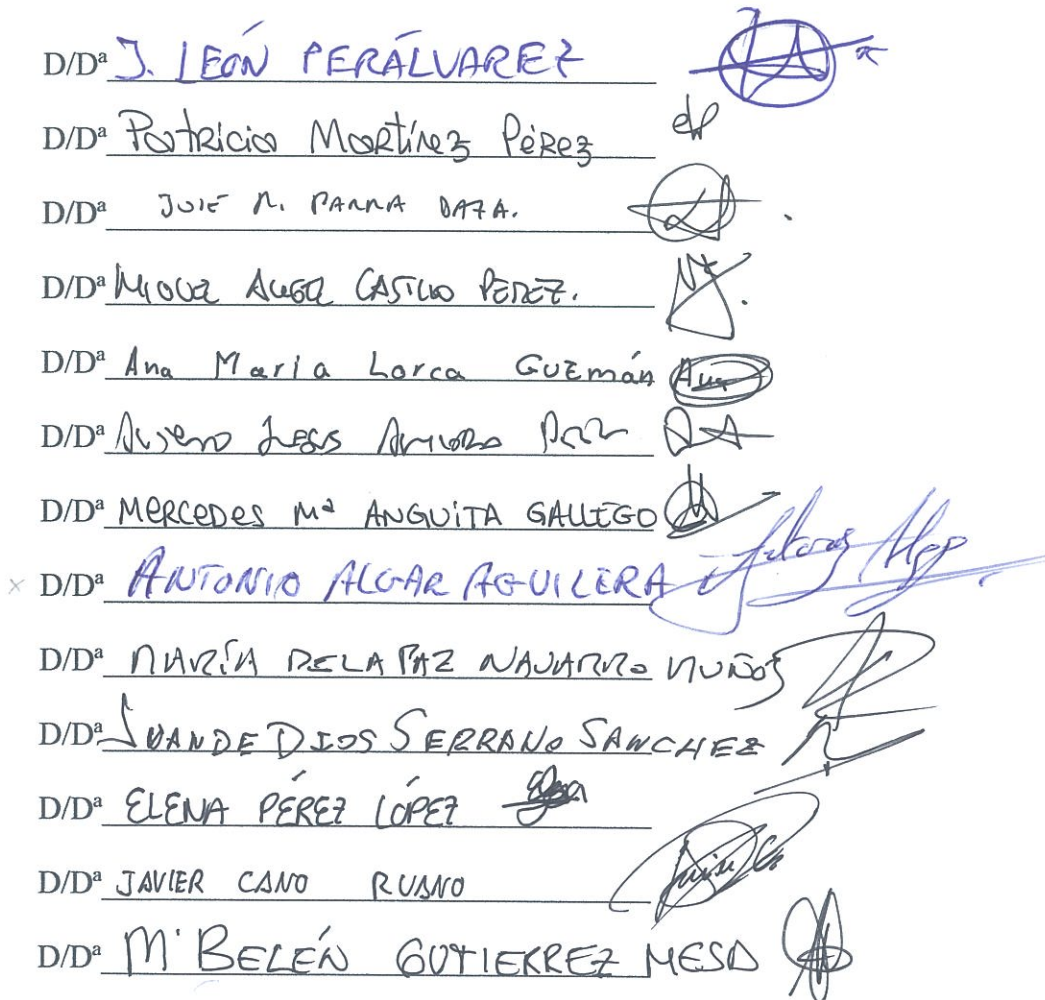 D/Dª J. LEÓN PERÁLVAREZ
D/Dª Patricia Martínez Pérez
D/Dª JOSÉ M. PARRA DAZA.
D/Dª MIGUEL ANGEL CASTILLO PEREZ.
D/Dª Ana María Lorca Guzmán
D/Dª JESÚS
D/Dª MERCEDES Mª ANGUITA GALLEGO
x D/Dª ANTONIO ALGAR AGUILERA
D/Dª MARÍA DE LA PAZ NAVARRO MUÑOZ
D/Dª JUAN DE DIOS SERRANO SANCHEZ
D/Dª ELENA PÉREZ LÓPEZ
D/Dª JAVIER CANO RUANO
D/Dª Mª BELÉN GUTIERREZ MESA